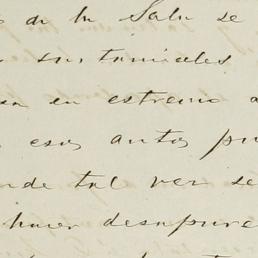 de la Sala se
sustanciales
en extremo a
esos autos pu
tal vez se
hacer desapare